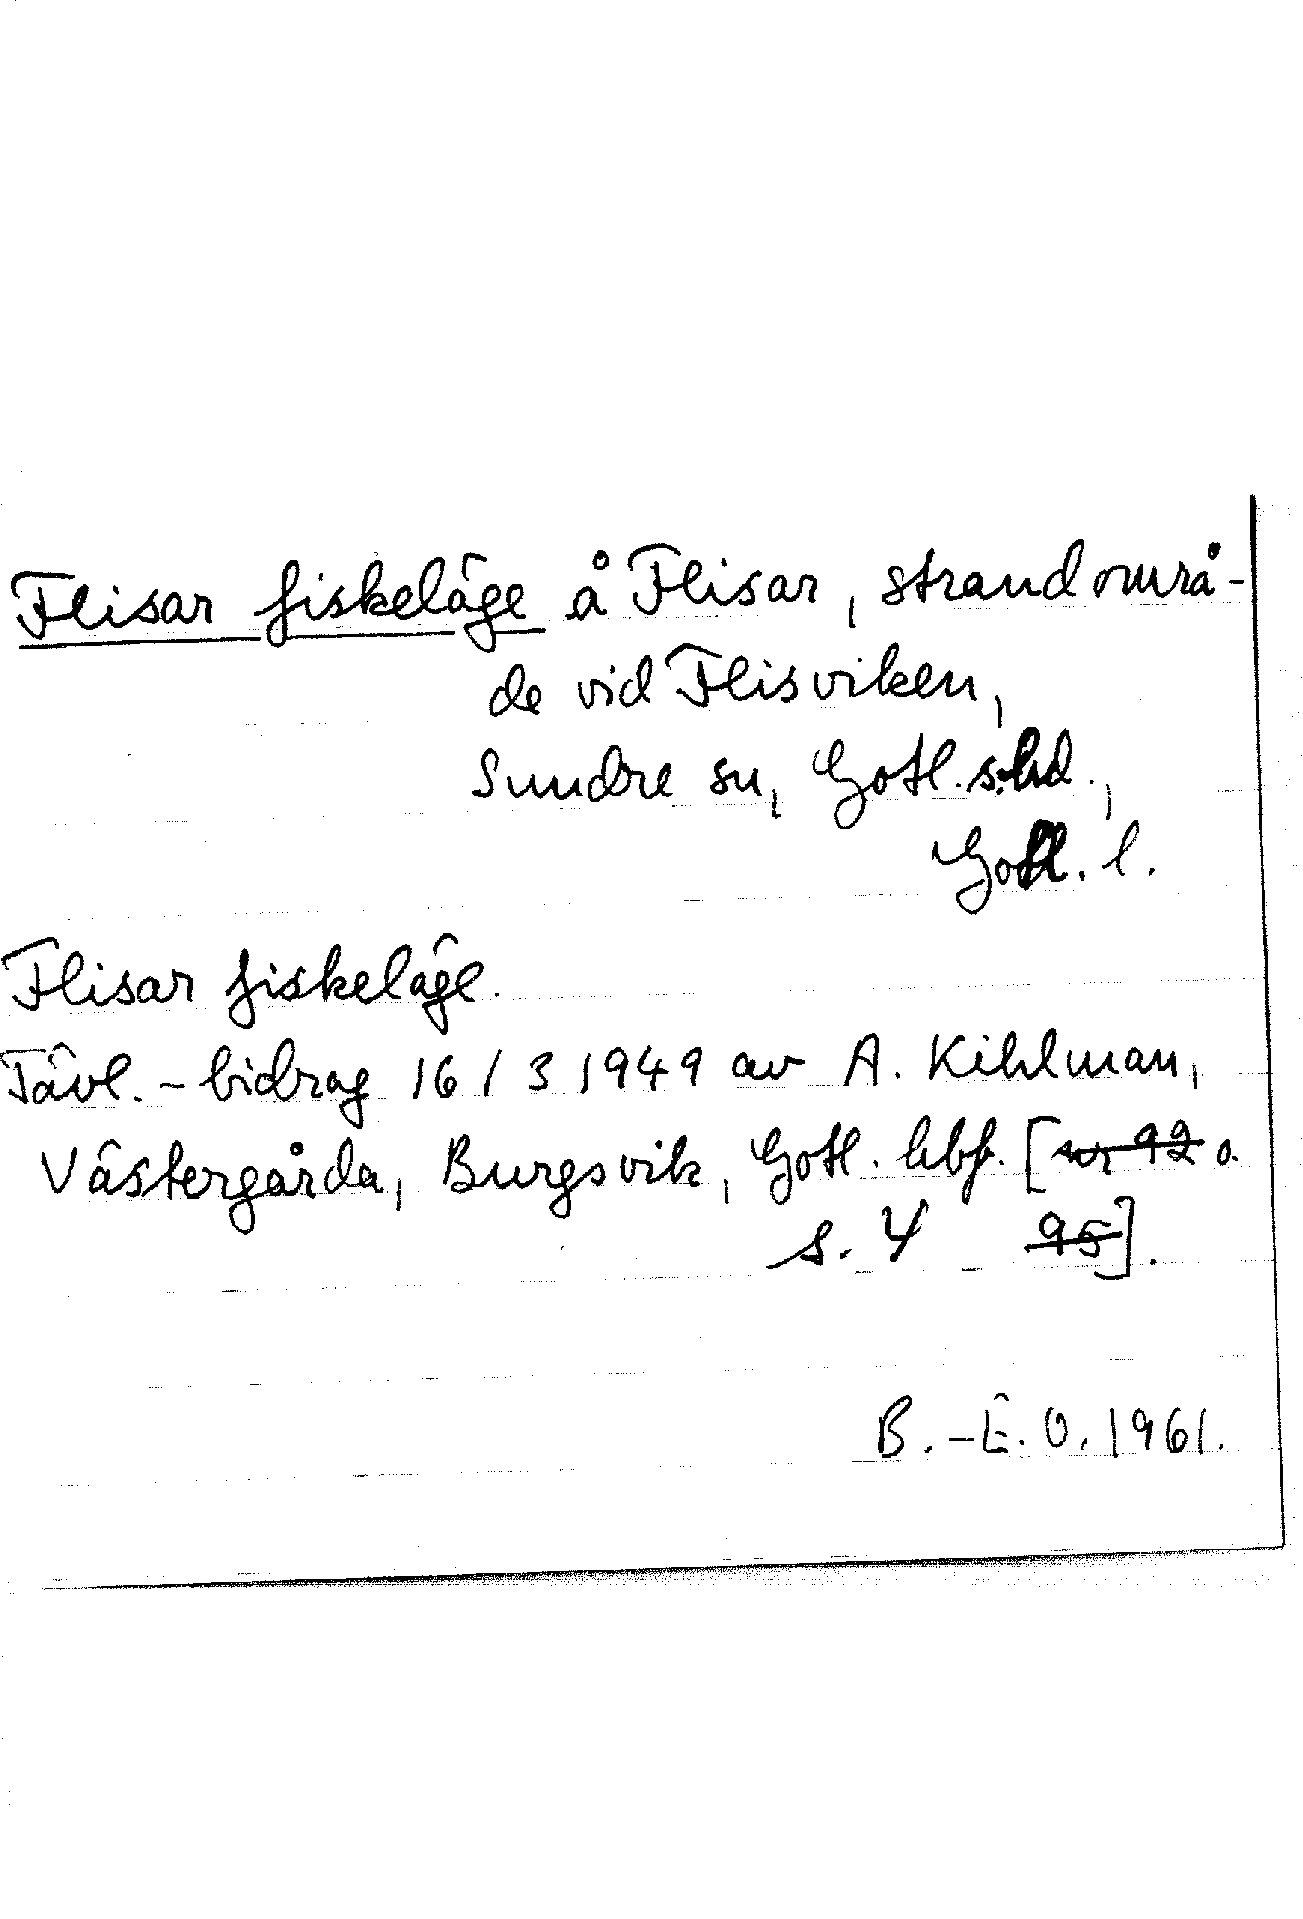 Flisar fiskeläge å Flisar, strandområ-
de vid Flisviken,
Sundre sn, Gotl. s. hd.,
Gotl. l.
Flisar fiskeläge.
Tävl.-bidrag 16/3 1949 av A. Kihlman,
Västergårda, Burgsvik, Gotl. hbf. [nr 92 o.
s. 4 95].
B.-E. O. 1961.